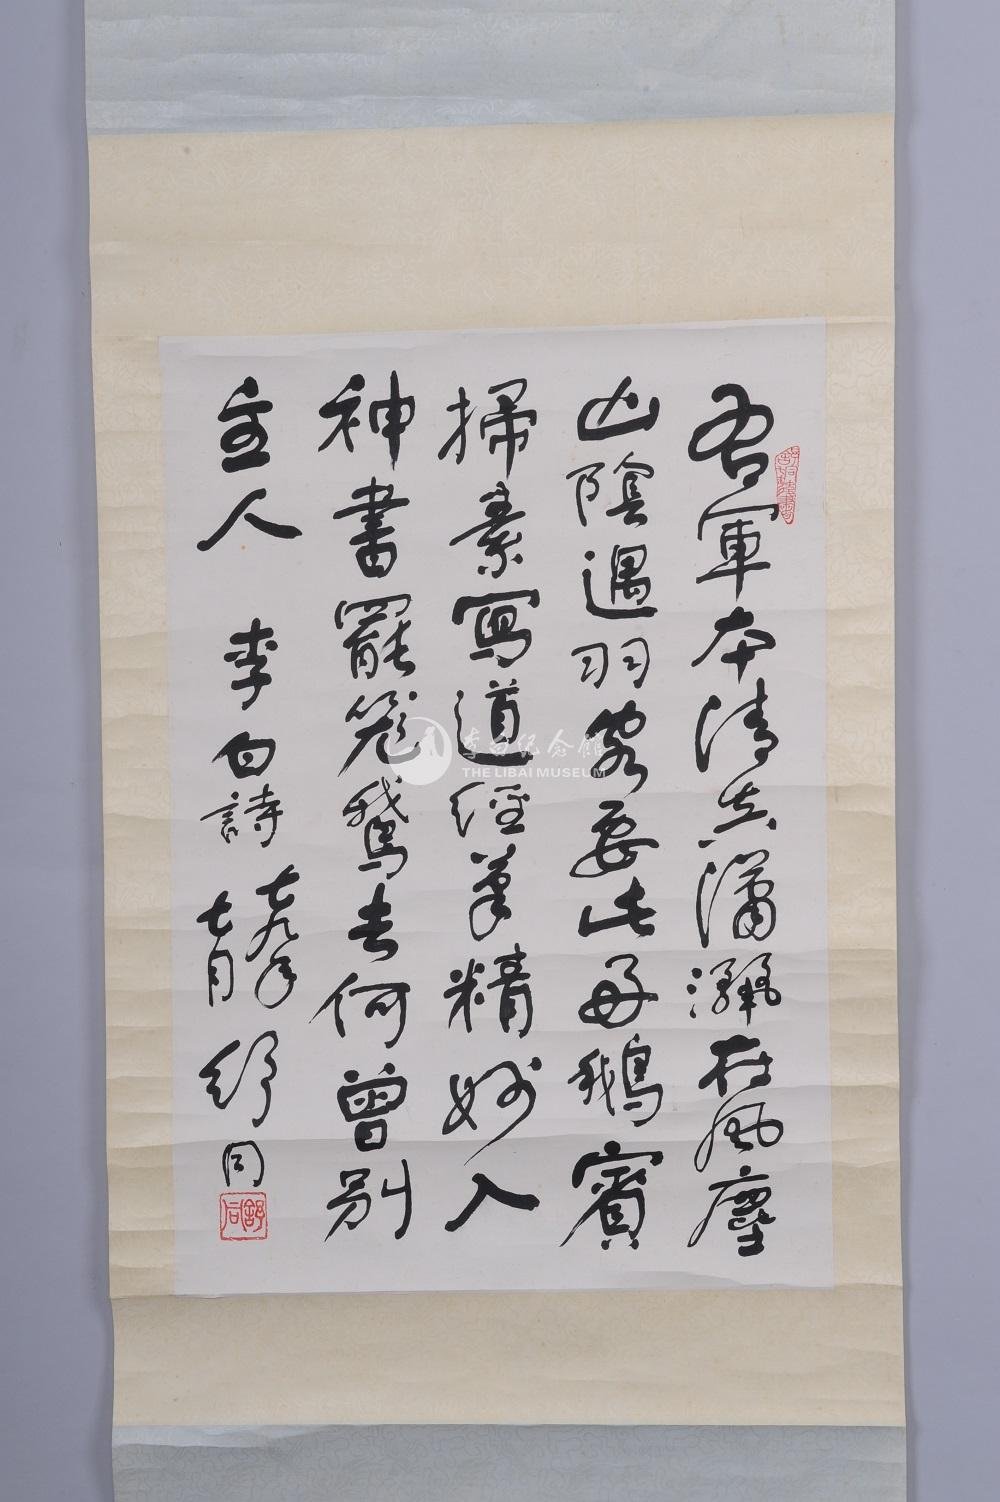 右軍本清真瀟灑在風塵
山陰遇羽客要此好鵝賓
掃素寫道經筆精妙入
神書罷笼鵝去何曾別
主人 李白詩 七九年
七月 舒同
舒同
李白纪念館
THE LIBAI MUSEUM